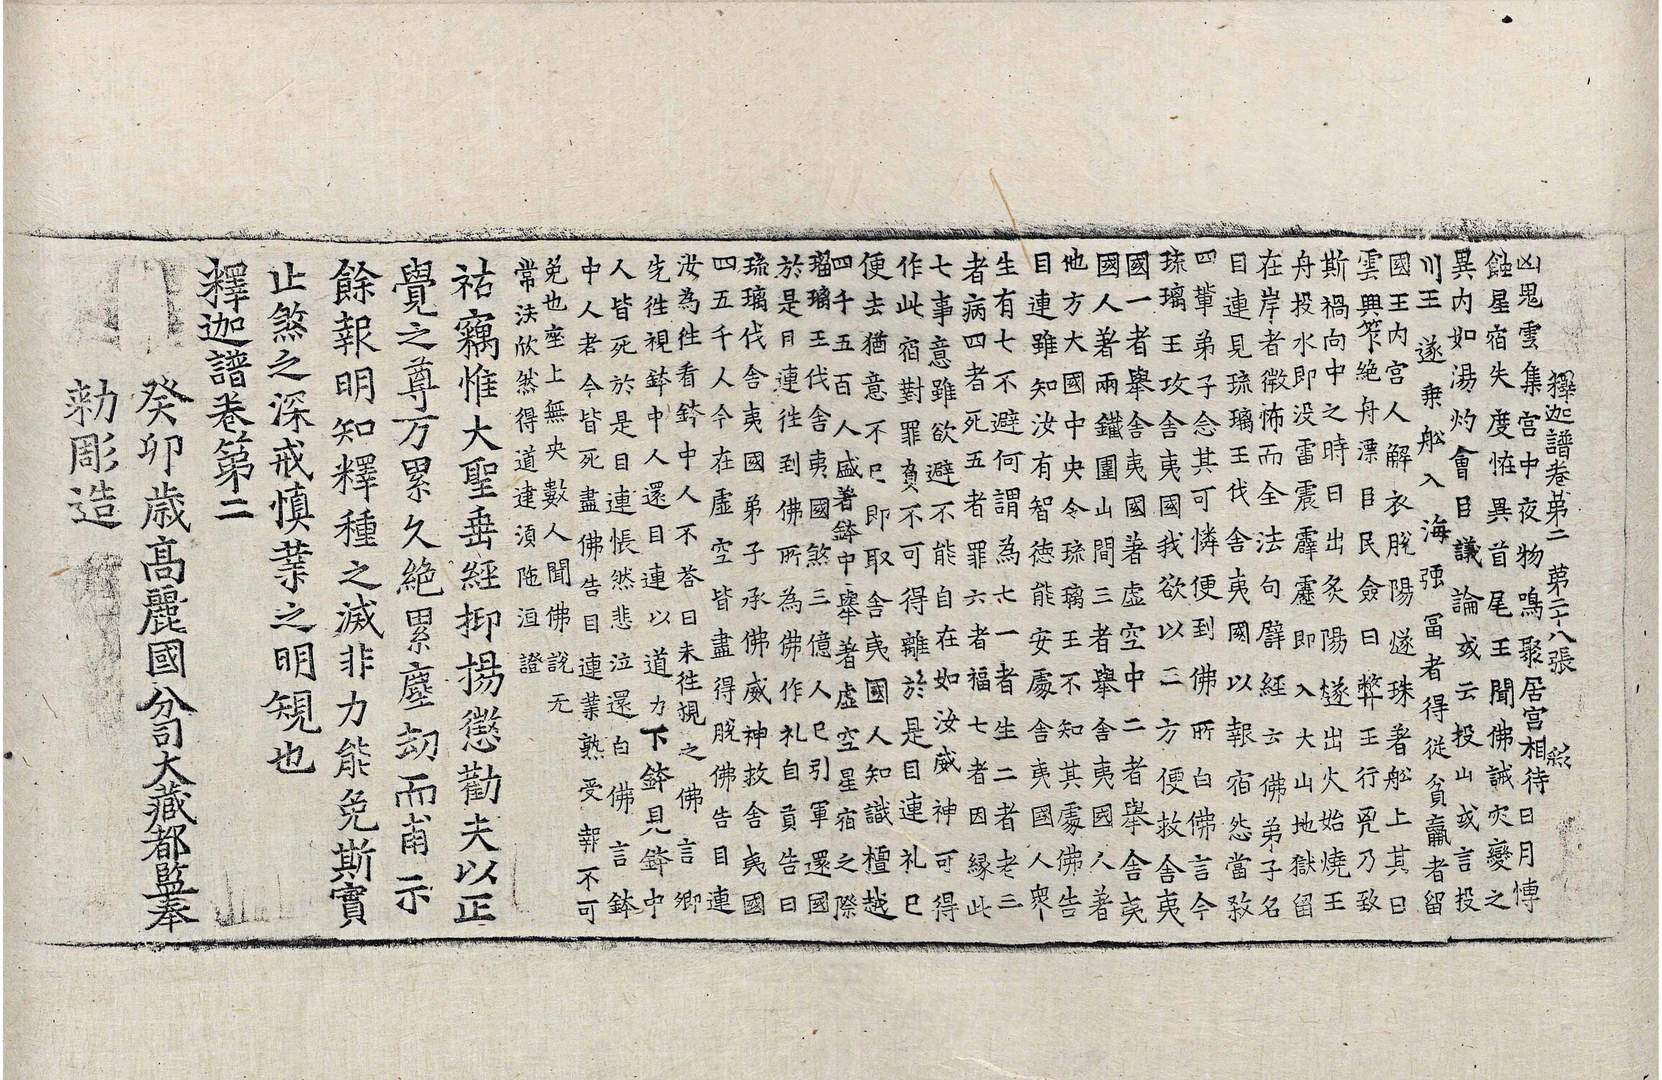 釋迦譜卷第二 第二十八張 煞
凶鬼雲集宮中夜物鳴聚居宮相待日月愽
蝕星宿失度恠異首尾王聞佛誡灾變之
異內如湯灼會目議論或云投山或言投
川王遂乗舩入海强冨者得從貧羸者留
國王內宮人解衣脫陽燧珠著舩上其日
雲興䆉絕舟漂目民僉曰弊王行兇乃致
斯禍向中之時日出炙陽燧出火始燒王
舟投水即没雷震霹靂即入大山地獄留
在岸者微怖而全法句譬經云佛弟子名
目連見琉璃王伐舍夷國以報宿怨當敎
四軰弟子念其可憐便到佛所白佛言今
琉璃王攻舍夷國我欲以二方便救舍夷
國一者舉舍夷國著虛空中二者舉舍夷
國人著兩鐵圍山間三者舉舍夷國人著
他方大國中央令琉璃王不知其處佛告
目連雖知汝有智德能安處舍夷國人衆
生有七不避何謂為七一者生二者老三
者病四者死五者罪六者福七者因緣此
七事意雖欲避不能自在如汝威神可得
作此宿對罪負不可得離於是目連礼已
便去猶意不已即取舍夷國人知識檀越
四千五百人盛著鉢中舉著虛空星宿之際
瑠璃王伐舍夷國煞三億人已引軍還國
於是目連往到佛所為佛作礼自貢告曰
琉璃伐舍夷國弟子承佛威神救舍夷國
四五千人今在虛空皆盡得脫佛告目連
汝為往看鉢中人不荅曰未往視之佛言卿
先往視鉢中人還目連以道力下鉢見鉢中
人皆死於是目連悵然悲泣還白佛言鉢
中人者今皆死盡佛告目連業熟受報不可
免也座上無央數人聞佛說无
常法欣然得道逮須陁洹證
祐竊惟大聖垂經抑揚懲勸夫以正
覺之尊方累久絕累塵劫而甫示
餘報明知釋種之滅非力能免斯實
止煞之深戒慎業之明䂓也
釋迦譜卷第二
癸卯歲高麗國分司大藏都監奉
勑彫造